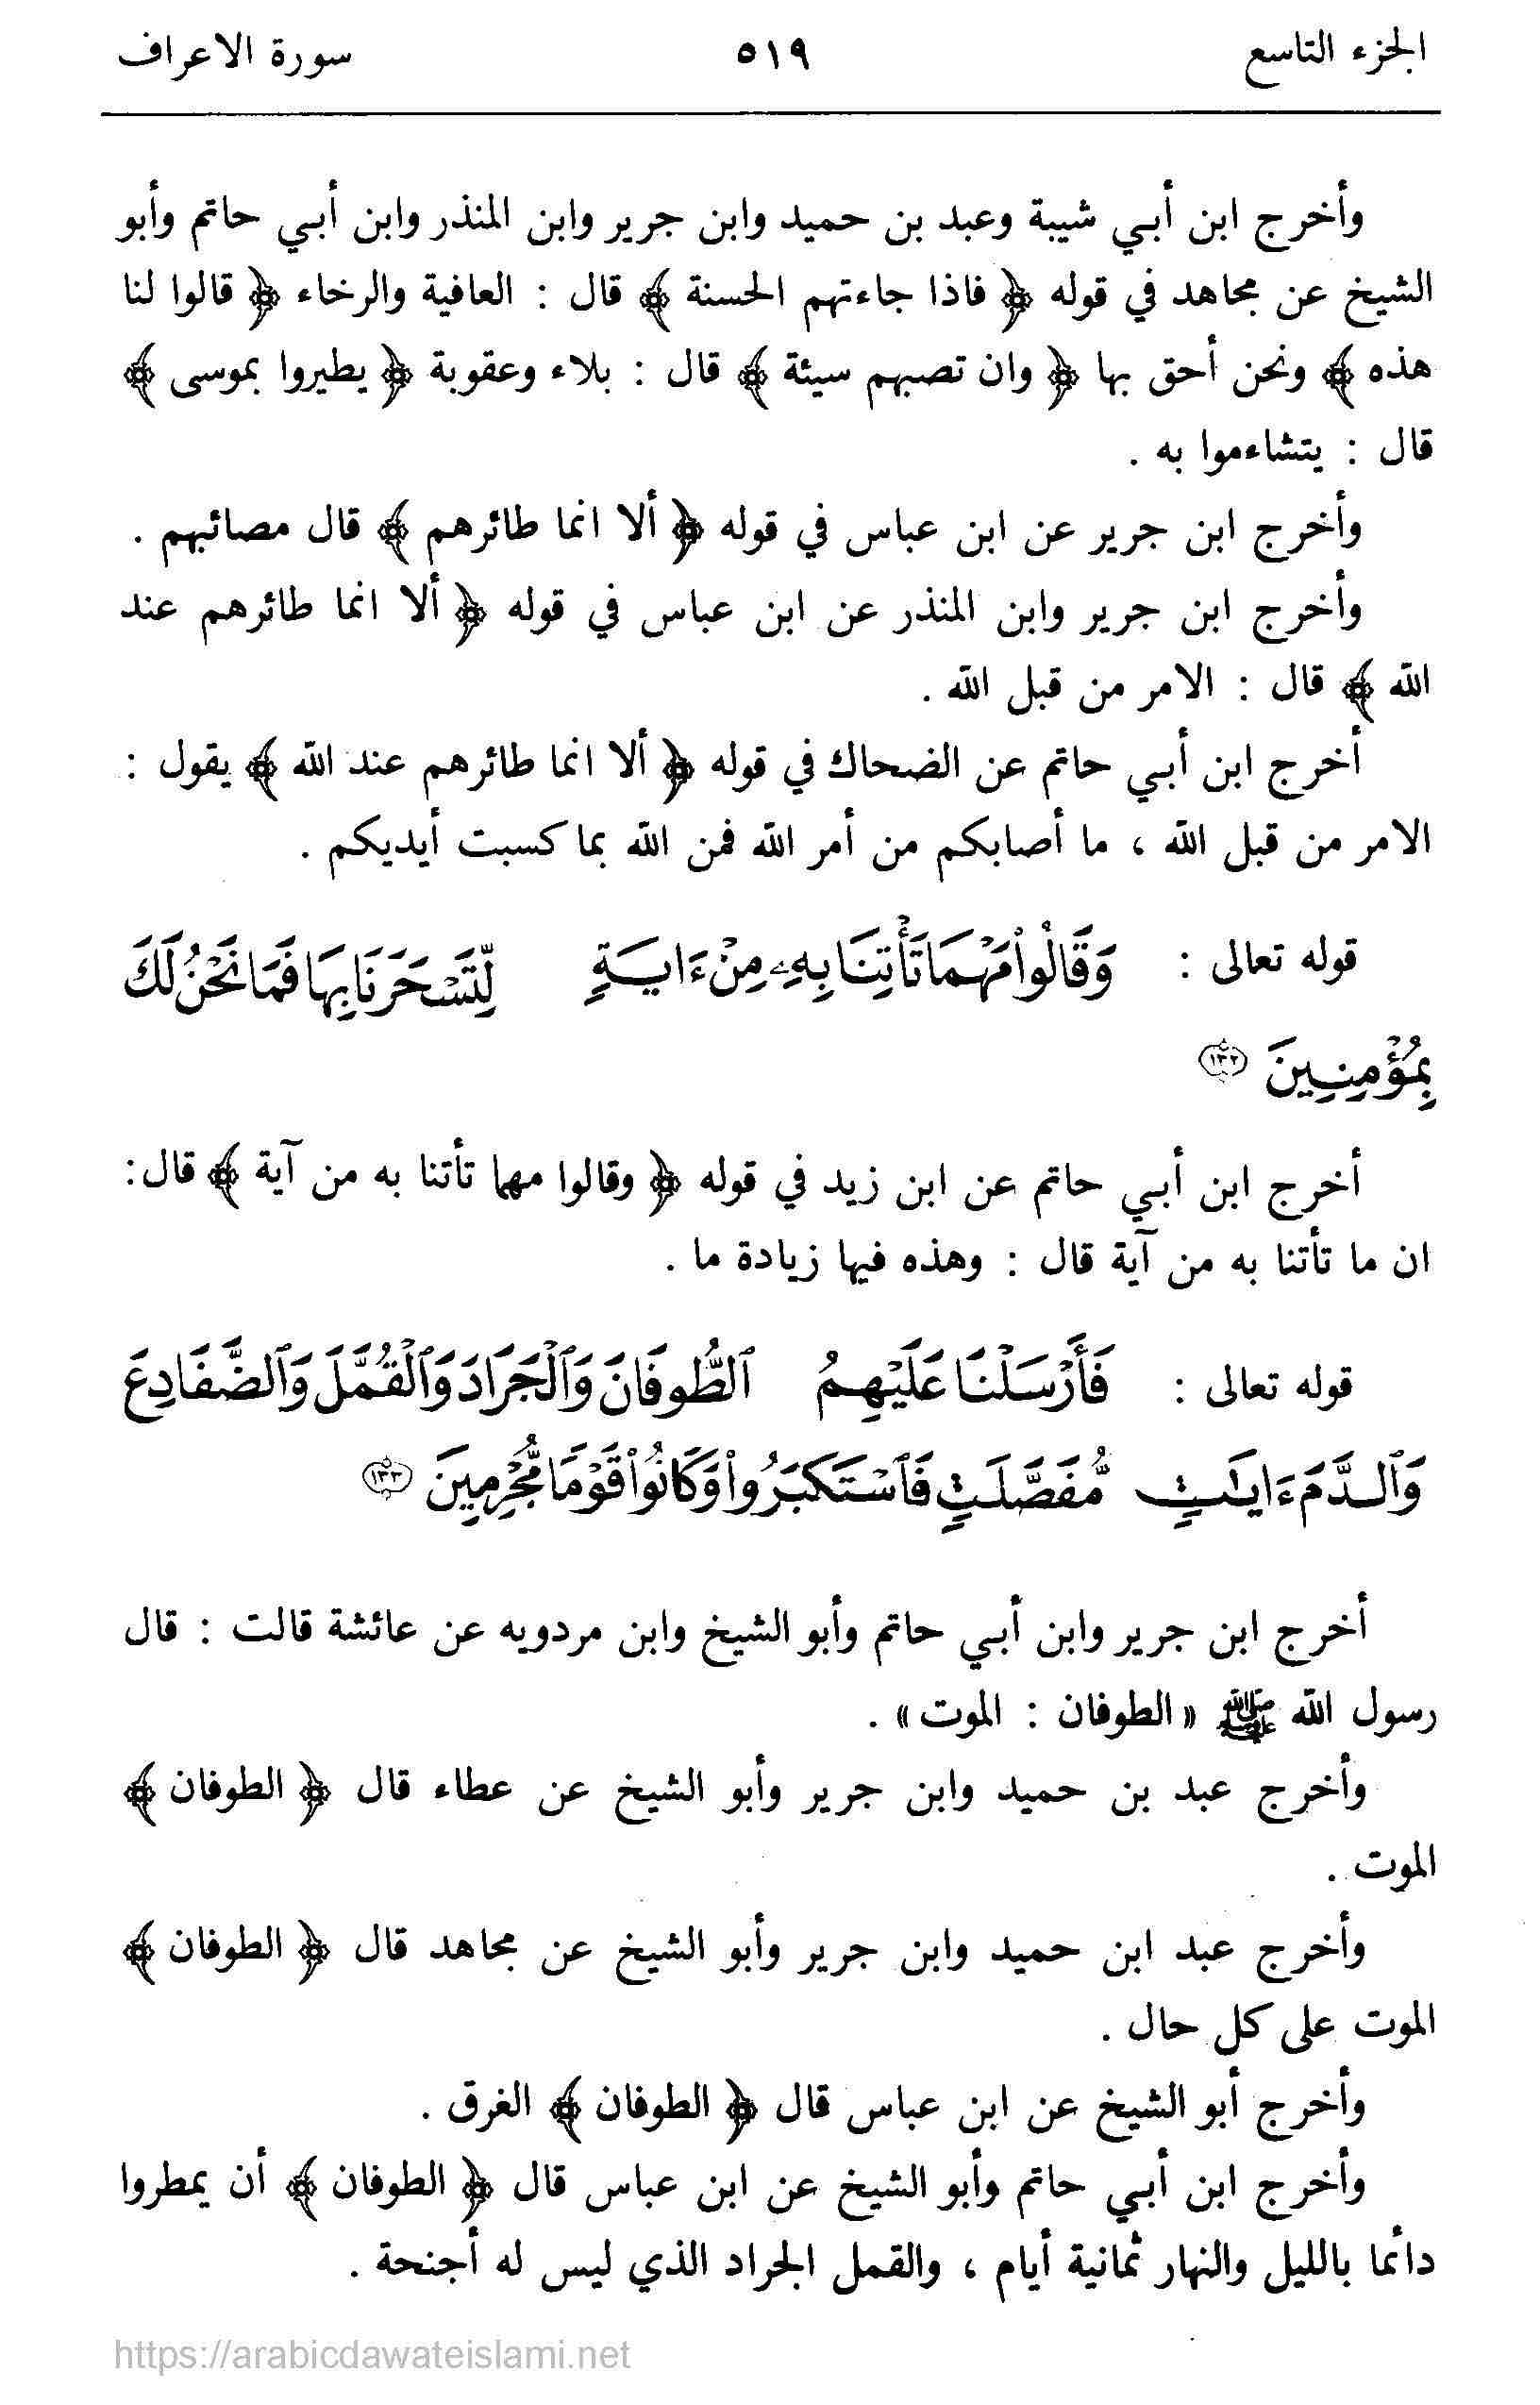 الجزء التاسع ٥١٩ سورة الاعراف
وأخرج ابن أبي شيبة وعبد بن حميد وابن جرير وابن المنذر وابن أبي حاتم وأبو
الشيخ عن مجاهد في قوله ﴿ فاذا جاءتهم الحسنة ﴾ قال : العافية والرخاء ﴿ قالوا لنا
هذه ﴾ ونحن أحق بها ﴿ وان تصبهم سيئة ﴾ قال : بلاء وعقوبة ﴿ يطيروا بموسى ﴾
قال : يتشاءموا به .
وأخرج ابن جرير عن ابن عباس في قوله ﴿ ألا انما طائرهم ﴾ قال مصائبهم .
وأخرج ابن جرير وابن المنذر عن ابن عباس في قوله ﴿ ألا انما طائرهم عند
الله ﴾ قال : الامر من قبل الله .
أخرج ابن أبي حاتم عن الضحاك في قوله ﴿ ألا انما طائرهم عند الله ﴾ يقول :
الامر من قبل الله ، ما أصابكم من أمر الله فمن الله بما كسبت أيديكم .
قوله تعالى : وَقَالُوا۟ مَهْمَا تَأْتِنَا بِهِۦ مِنْ ءَايَةٍ لِّتَسْحَرَنَا بِهَا فَمَا نَحْنُ لَكَ
بِمُؤْمِنِينَ ١٣٢
أخرج ابن أبي حاتم عن ابن زيد في قوله ﴿ وقالوا مهما تأتنا به من آية ﴾ قال:
ان ما تأتنا به من آية قال : وهذه فيها زيادة ما .
قوله تعالى : فَأَرْسَلْنَا عَلَيْهِمُ ٱلطُّوفَانَ وَٱلْجَرَادَ وَٱلْقُمَّلَ وَٱلضَّفَادِعَ
وَٱلدَّمَ ءَايَٰتٍ مُّفَصَّلَٰتٍ فَٱسْتَكْبَرُوا۟ وَكَانُوا۟ قَوْمًا مُّجْرِمِينَ ١٣٣
أخرج ابن جرير وابن أبي حاتم وأبو الشيخ وابن مردويه عن عائشة قالت : قال
رسول الله ﷺ «الطوفان : الموت» .
وأخرج عبد بن حميد وابن جرير وأبو الشيخ عن عطاء قال ﴿ الطوفان ﴾
الموت .
وأخرج عبد ابن حميد وابن جرير وأبو الشيخ عن مجاهد قال ﴿ الطوفان ﴾
الموت على كل حال .
وأخرج أبو الشيخ عن ابن عباس قال ﴿ الطوفان ﴾ الغرق .
وأخرج ابن أبي حاتم وأبو الشيخ عن ابن عباس قال ﴿ الطوفان ﴾ أن يمطروا
دائما بالليل والنهار ثمانية أيام ، والقمل الجراد الذي ليس له أجنحة .
https://arabicdawateislami.net